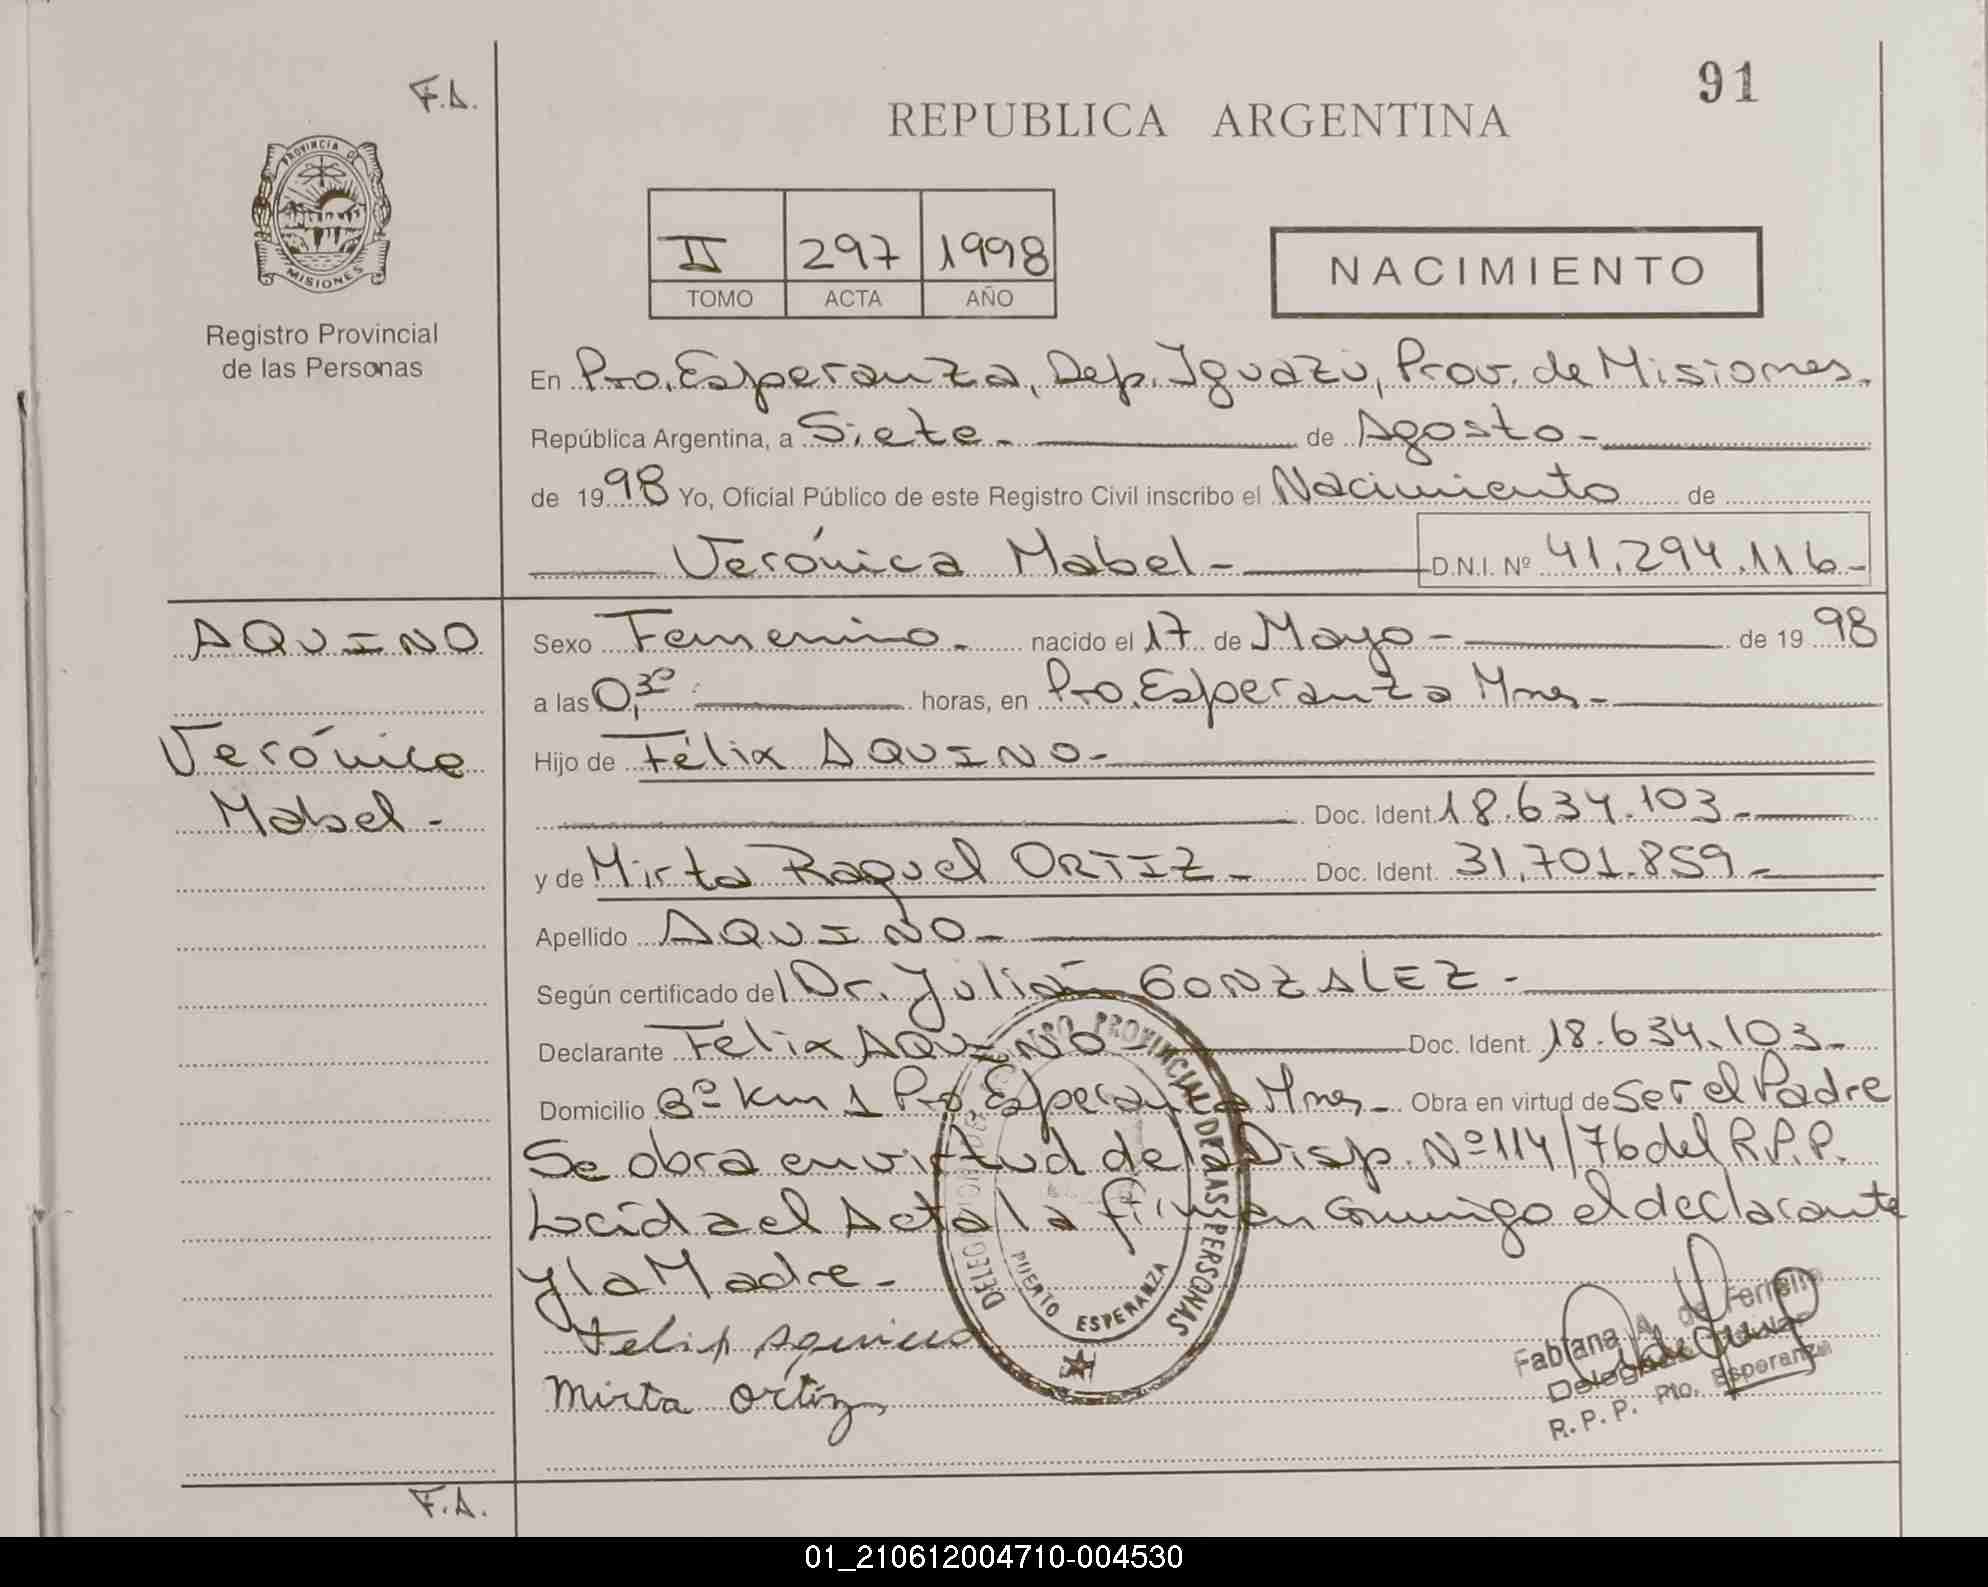 91
F.A.
REPUBLICA ARGENTINA
PROVINCIA DE
MISIONES
Registro Provincial
de las Personas
II 297 1998
TOMO ACTA AÑO
NACIMIENTO
En Pto. Esperanza, Dep. Iguazú, Prov. de Misiones.
República Argentina, a Siete - de Agosto -
de 1998 Yo, Oficial Público de este Registro Civil inscribo el Nacimiento de
Verónica Mabel - D.N.I. Nº 41.294.116-
AQUINO
Verónica
Mabel -
Sexo Femenino - nacido el 17 de Mayo - de 1998
a las 0,30 horas, en Pto. Esperanza Mnes -
Hijo de Félix AQUINO -
Doc. Ident. 18.634.103 -
y de Mirta Raquel ORTIZ - Doc. Ident. 31.701.859 -
Apellido AQUINO -
Según certificado del Dr. Julián GONZALEZ -
Declarante Felix AQUINO Doc. Ident. 18.634.103 -
Domicilio Bº Km 1 Pto. Esperanza Mnes - Obra en virtud de Ser el Padre
Se obra en virtud de la Disp. Nº 114/76 del R.P.P.
Leída el Acta la firman conmigo el declarante
y la Madre -
Felix Aquino
Mirta Ortiz
PROVINCIAL DE LAS PERSONAS
PUERTO ESPERANZA
Fabiana A. de Ferreira
R.P.P. Pto. Esperanza
F.A.
01_210612004710-004530